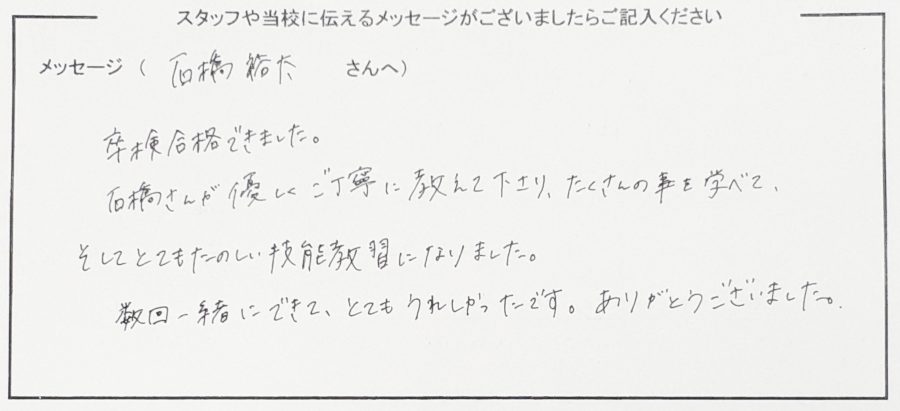 スタッフや当校に伝えるメッセージがございましたらご記入ください
メッセージ ( 石橋 裕太 さんへ)
卒検合格できました。
石橋さんが優しくご丁寧に教えて下さり、たくさんの事を学べて、
そしてとてもたのしい技能教習になりました。
数回一緒にできて、とてもうれしかったです。ありがとうございました。